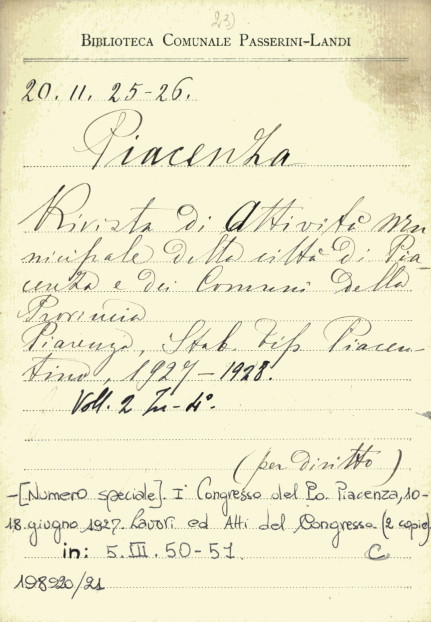 23)
BIBLIOTECA COMUNALE PASSERINI-LANDI
20. II. 25-26.
Piacenza
Rivista di Attività mu
nicipale della città di Pia
cenza e dei Comuni della
Provincia
Piacenza, Stab. Tip. Piacen-
tino, 1927-1928.
Voll. 2 In-4°.
(per diritto)
-[Numero speciale]. I° Congresso del Po. Piacenza, 10-
18. giugno 1927. Lavori ed Atti del Congresso. (2 copie)
in: 5. III. 50-51. C
198920/21